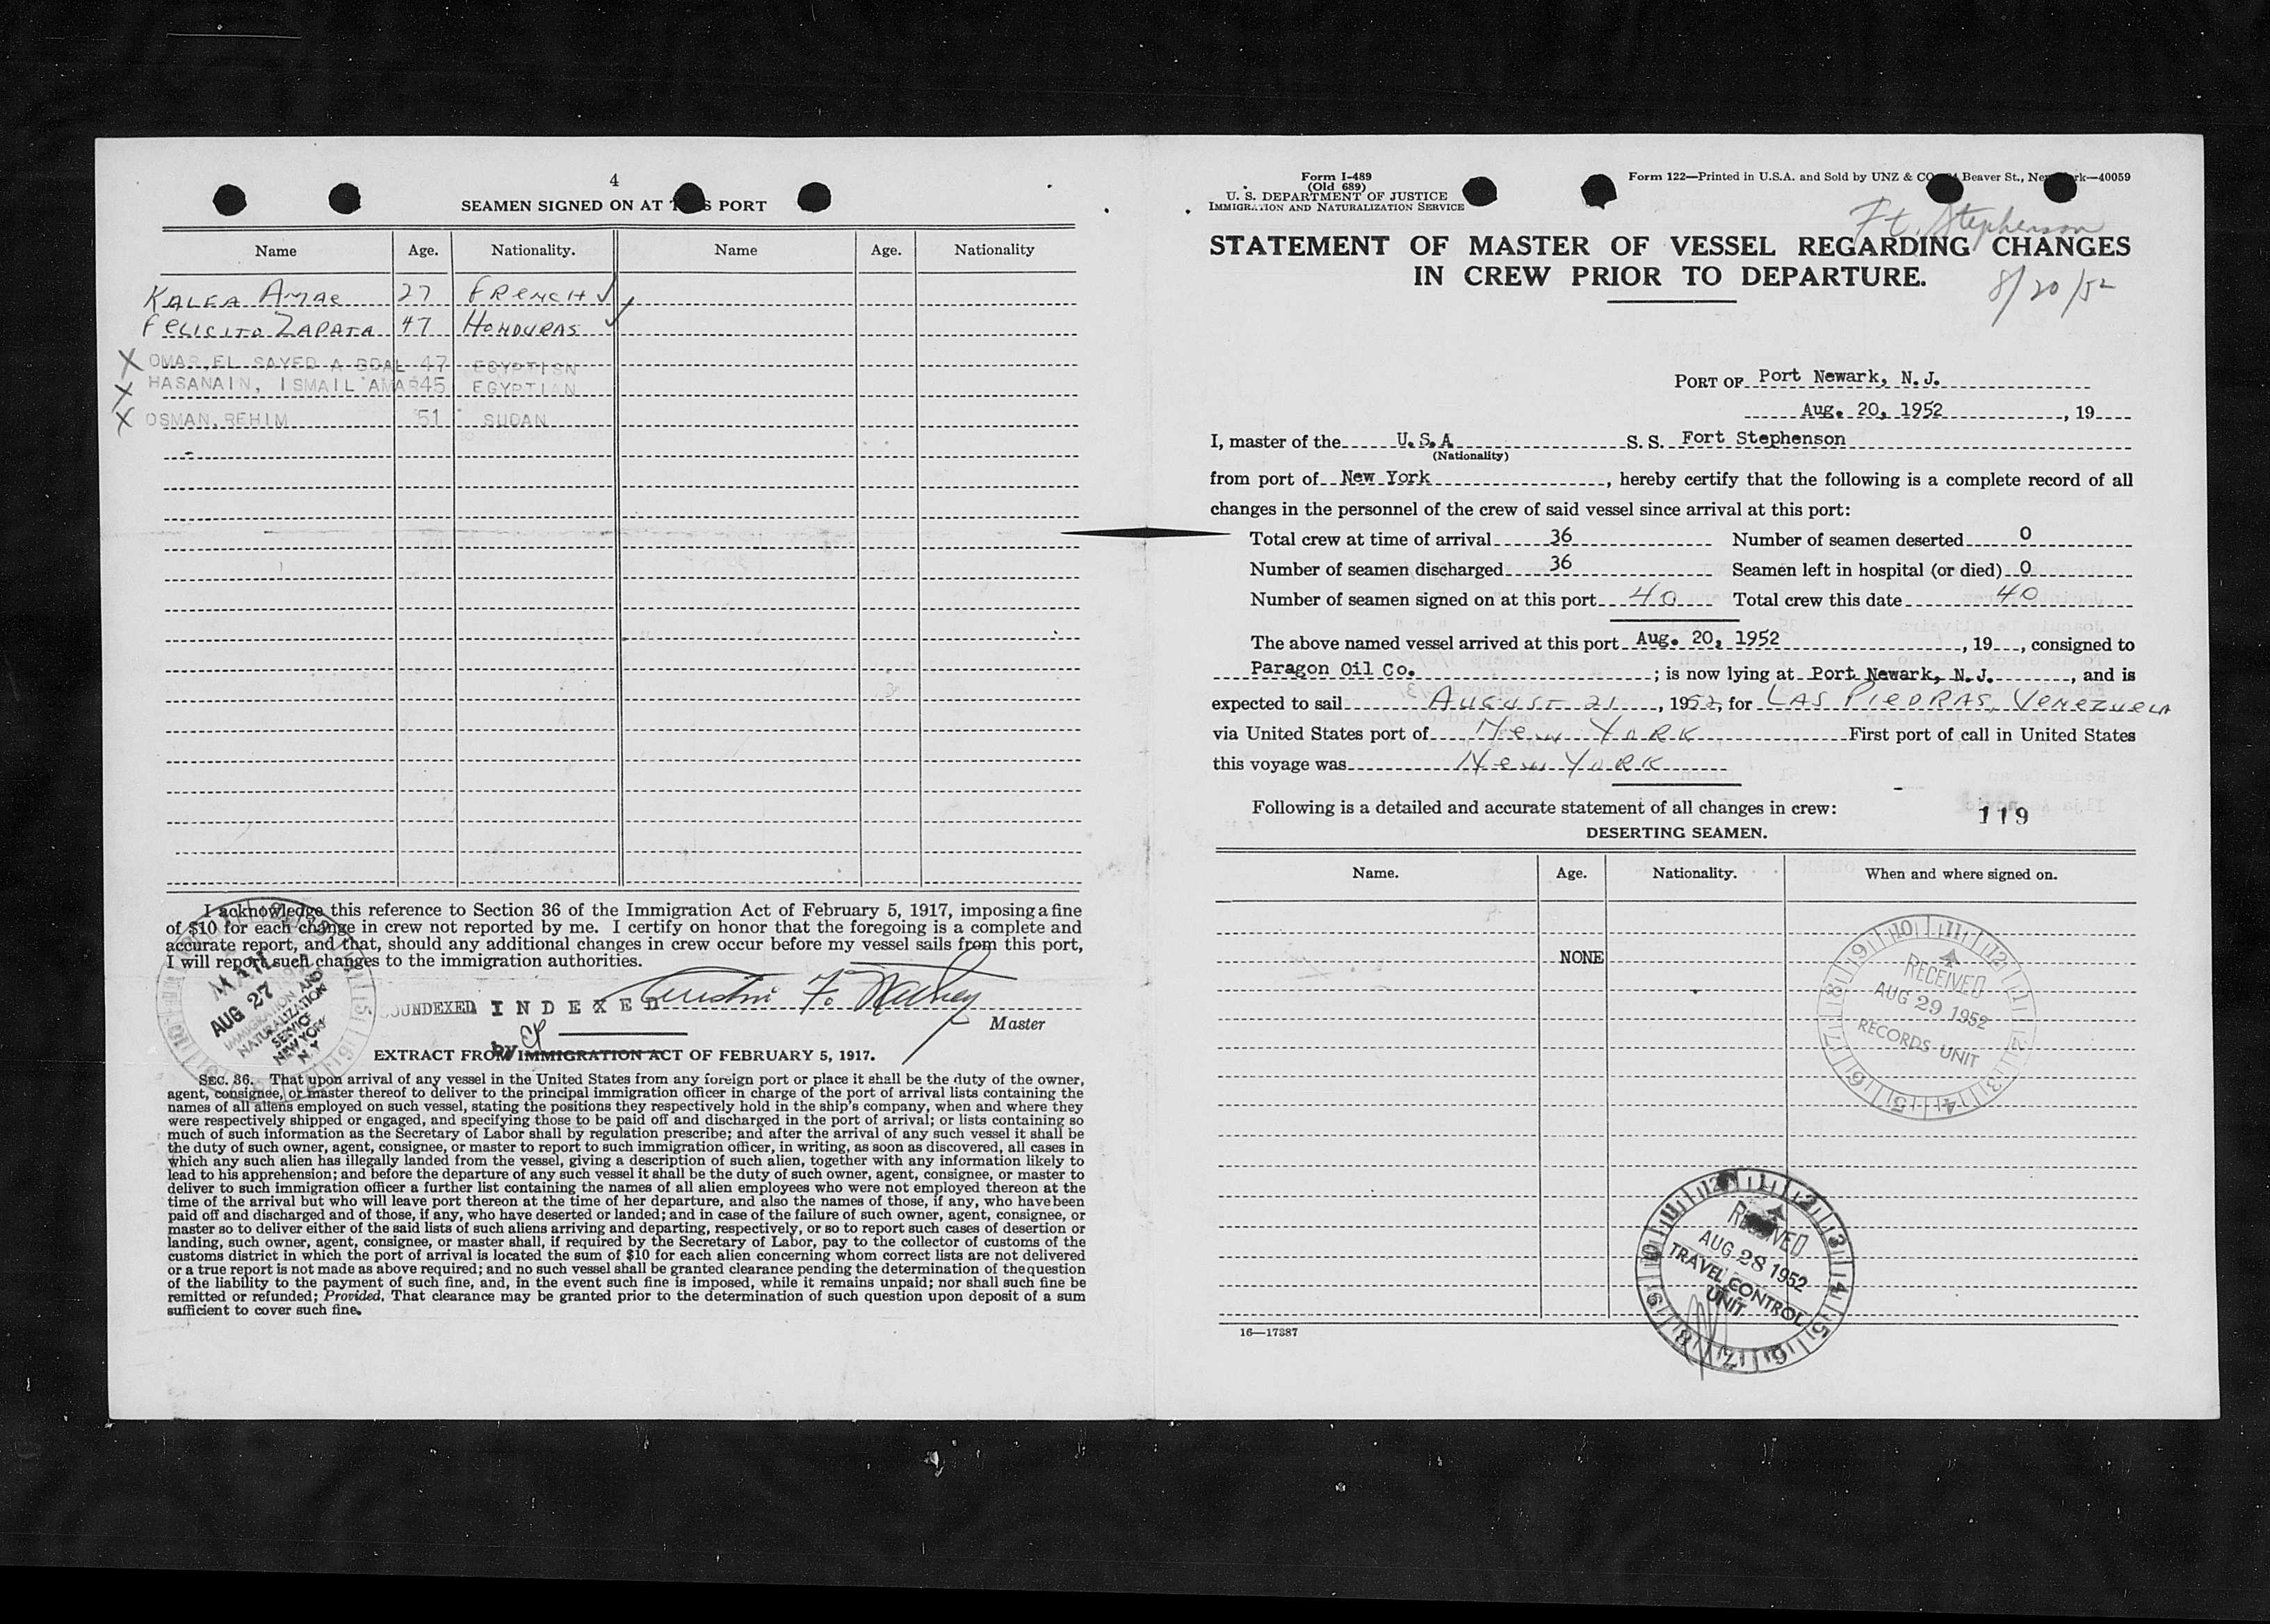 4
SEAMEN SIGNED ON AT PORT
Name Age. Nationality. Name Age. Nationality
KALEA AMAR 27 FRENCH
FELICITO ZAPATA 47 HONDURAS
X OMAR, EL SAYED A BDAL 47 EGYPTISN
X HASANAIN, ISMAIL AMAR 45 EGYPTIAN
X OSMAN, REHIM 51 SUDAN
I acknowledge this reference to Section 36 of the Immigration Act of February 5, 1917, imposing a fine
of $10 for each change in crew not reported by me. I certify on honor that the foregoing is a complete and
accurate report, and that, should any additional changes in crew occur before my vessel sails from this port,
I will report such changes to the immigration authorities.
AUG 27
IMMIGRATION AND
NATURALIZATION
SERVICE
NEW YORK
N.Y
INDEXED
Master
by
EXTRACT FROM IMMIGRATION ACT OF FEBRUARY 5, 1917.
SEC. 36. That upon arrival of any vessel in the United States from any foreign port or place it shall be the duty of the owner,
agent, consignee, or master thereof to deliver to the principal immigration officer in charge of the port of arrival lists containing the
names of all aliens employed on such vessel, stating the positions they respectively hold in the ship's company, when and where they
were respectively shipped or engaged, and specifying those to be paid off and discharged in the port of arrival; or lists containing so
much of such information as the Secretary of Labor shall by regulation prescribe; and after the arrival of any such vessel it shall be
the duty of such owner, agent, consignee, or master to report to such immigration officer, in writing, as soon as discovered, all cases in
which any such alien has illegally landed from the vessel, giving a description of such alien, together with any information likely to
lead to his apprehension; and before the departure of any such vessel it shall be the duty of such owner, agent, consignee, or master to
deliver to such immigration officer a further list containing the names of all alien employees who were not employed thereon at the
time of the arrival but who will leave port thereon at the time of her departure, and also the names of those, if any, who have been
paid off and discharged and of those, if any, who have deserted or landed; and in case of the failure of such owner, agent, consignee, or
master so to deliver either of the said lists of such aliens arriving and departing, respectively, or so to report such cases of desertion or
landing, such owner, agent, consignee, or master shall, if required by the Secretary of Labor, pay to the collector of customs of the
customs district in which the port of arrival is located the sum of $10 for each alien concerning whom correct lists are not delivered
or a true report is not made as above required; and no such vessel shall be granted clearance pending the determination of the question
of the liability to the payment of such fine, and, in the event such fine is imposed, while it remains unpaid; nor shall such fine be
remitted or refunded; Provided, That clearance may be granted prior to the determination of such question upon deposit of a sum
sufficient to cover such fine.
Form I-489
(Old 689)
U. S. DEPARTMENT OF JUSTICE
IMMIGRATION AND NATURALIZATION SERVICE
Form 122—Printed in U.S.A. and Sold by UNZ & CO Beaver St., New York—40059
Ft. Stephenson
STATEMENT OF MASTER OF VESSEL REGARDING CHANGES
IN CREW PRIOR TO DEPARTURE.
8/20/52
PORT OF Port Newark, N.J.
Aug. 20, 1952, 19
I, master of the U.S.A S. S. Fort Stephenson
(Nationality)
from port of New York, hereby certify that the following is a complete record of all
changes in the personnel of the crew of said vessel since arrival at this port:
Total crew at time of arrival 36 Number of seamen deserted 0
Number of seamen discharged 36 Seamen left in hospital (or died) 0
Number of seamen signed on at this port 40 Total crew this date 40
The above named vessel arrived at this port Aug. 20, 1952, 19, consigned to
Paragon Oil Co.; is now lying at Port Newark, N.J., and is
expected to sail AUGUST 21, 1952, for LAS PIEDRAS, VENEZUELA
via United States port of NEW YORK First port of call in United States
this voyage was NEW YORK
Following is a detailed and accurate statement of all changes in crew:
119
DESERTING SEAMEN.
Name. Age. Nationality. When and where signed on.
NONE
RECEIVED
AUG 29 1952
RECORDS UNIT
RECEIVED
AUG 28 1952
TRAVEL CONTROL
UNIT
16—17387